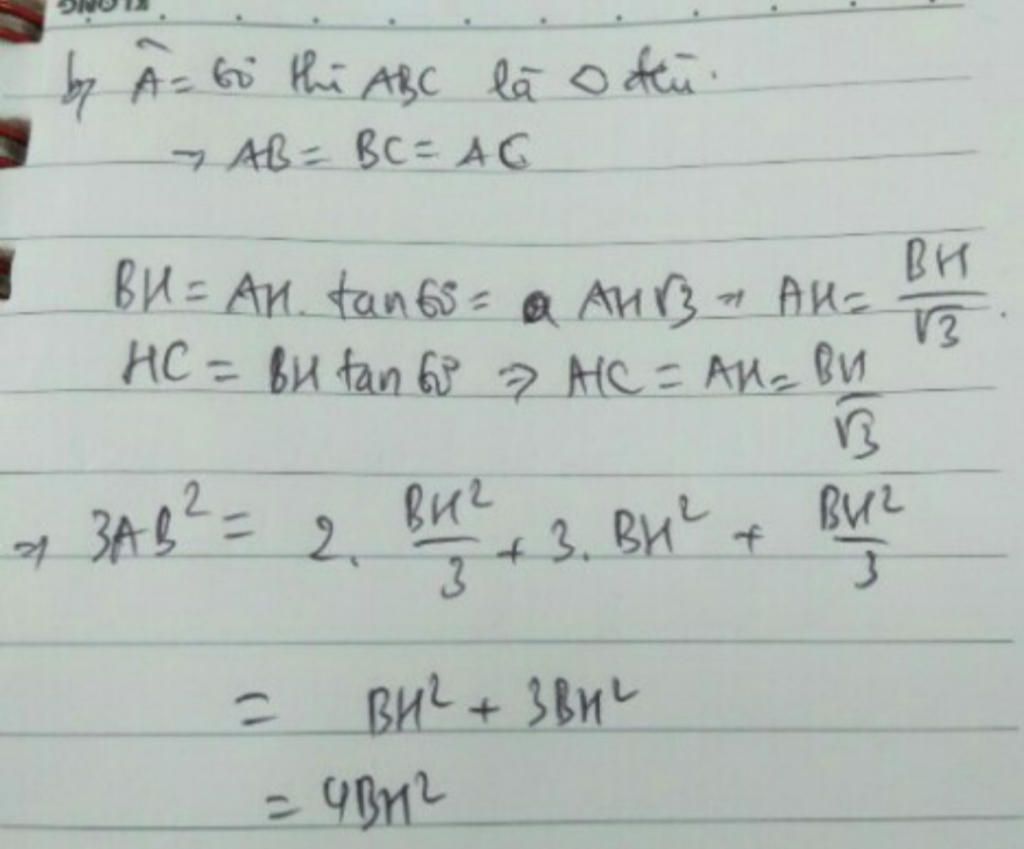 KLONG
b, Â = 60° thì ABC là △ đều.
→ AB = BC = AC
BH = AH. tan 60° = AH√3 → AH = BH/√3.
HC = BH tan 60° ⇒ HC = AH = BH/√3
⇒ 3AB² = 2. BH²/3 + 3. BH² + BH²/3
= BH² + 3BH²
= 4BH²